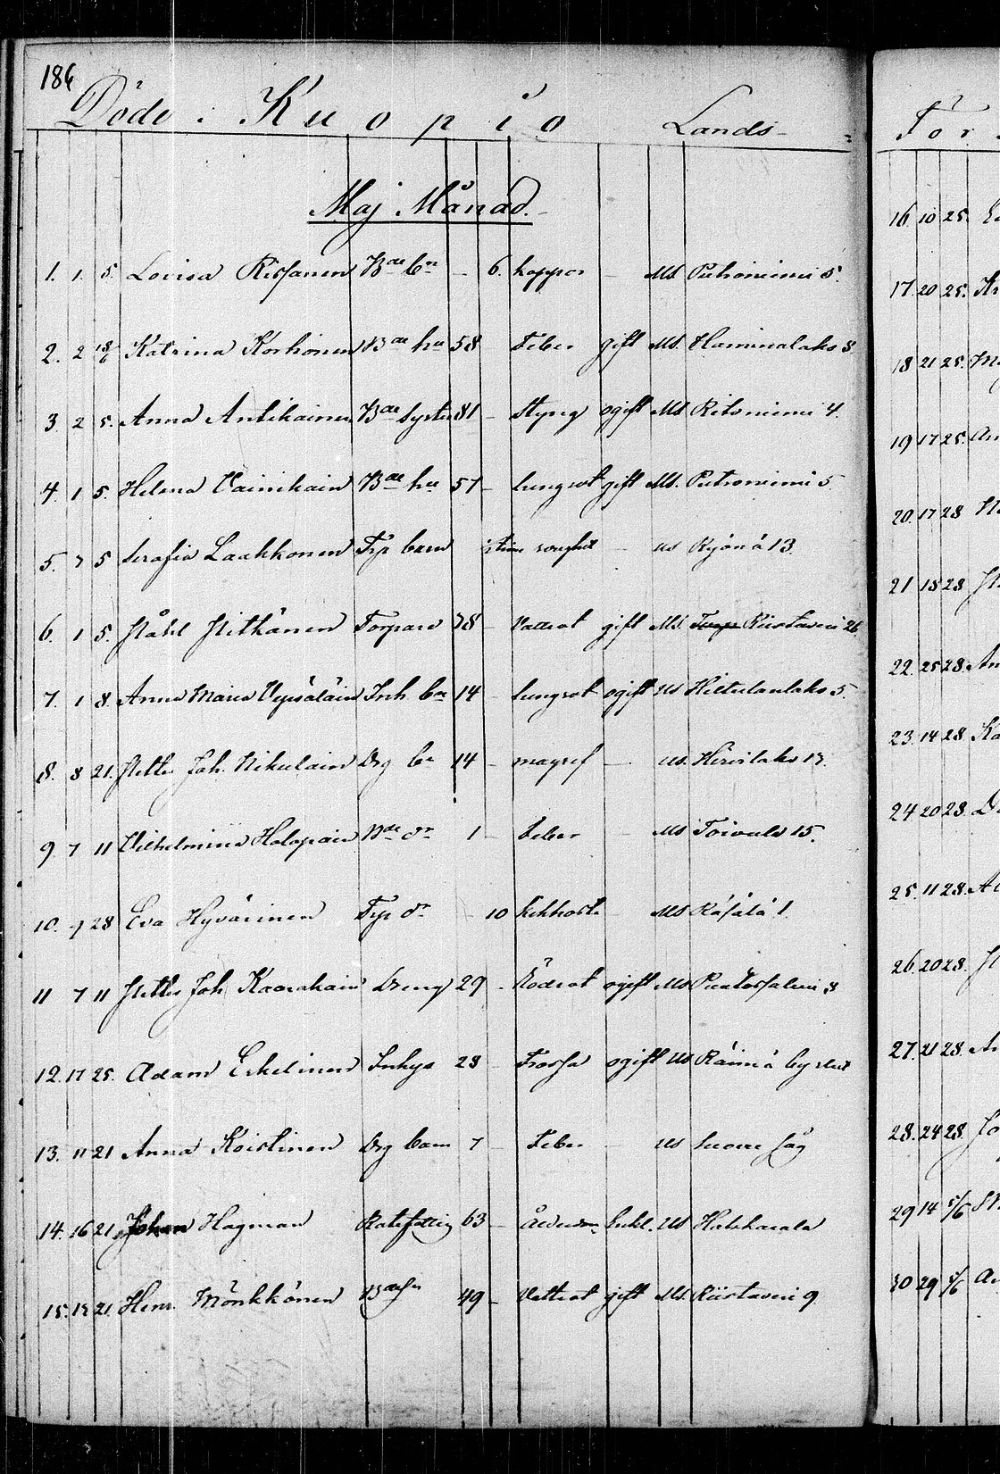 186
Döde i Kuopio Lands-
Maj Månad.
1. 1 5. Lovisa Rissanen Bde bn - 6. koppor - Ms Putroniemi 5.
2. 2 Katrina Korhonen Bde hu 58 Feber gift Ms. Haminalaks 8.
3. 2 5. Anna Antikainen Bde Syster 81 - Styng ogift Ms Ritoniemi 4.
4. 1 5. Helena Vainikain Bde hu 57 - lungsot gift Ms. Putroniemi 5.
5. 7 5 Serafia Laakkonen Trp barn - us 13.
6. 1 5. Påhl Torpare 78 - Vattsot gift Ms. Riistavesi 26.
7. 1 8. Anna Maria Inh. bn 14 - lungsot ogift us Hiltulanlaks 5.
8. 8 21. Petter Joh. Nikulain Drg bn 14 - magref - us. Hirvilaks 13.
9. 7 11 Vilhelmina Holopain Bde dr 1 - Feber - Ms Toivala 15.
10. 9 28 Eva Hyvärinen Trp dr - 10 kikhosta Ms Räsälä 1.
11 7 11 Petter Joh Kaarakain Dreng 29 - Rödsot ogift Ms
12. 17 25. Adam Eskelinen Inhys 28 - Frossa ogift us
13. 11 21 Anna Koistinen Drg barn 7 - Feber - us
14. 16 21 Johan Hagman Ratefattig 63 - Ålderdom. Enkl. us Hatsharala
15. 13 21. Henr. Mönkkönen 49 - Vattsot gift Ms. Riistavesi 9.
För
16. 10 25.
17. 20 25.
18 21 25.
19 17 25.
20. 17 28
21 18 28
22. 25 28. An
23. 14 28.
24 20 28.
25. 11 28.
26. 20 28.
27. 21 28.
28. 24 28.
29 14 5/6
30 29 5/6